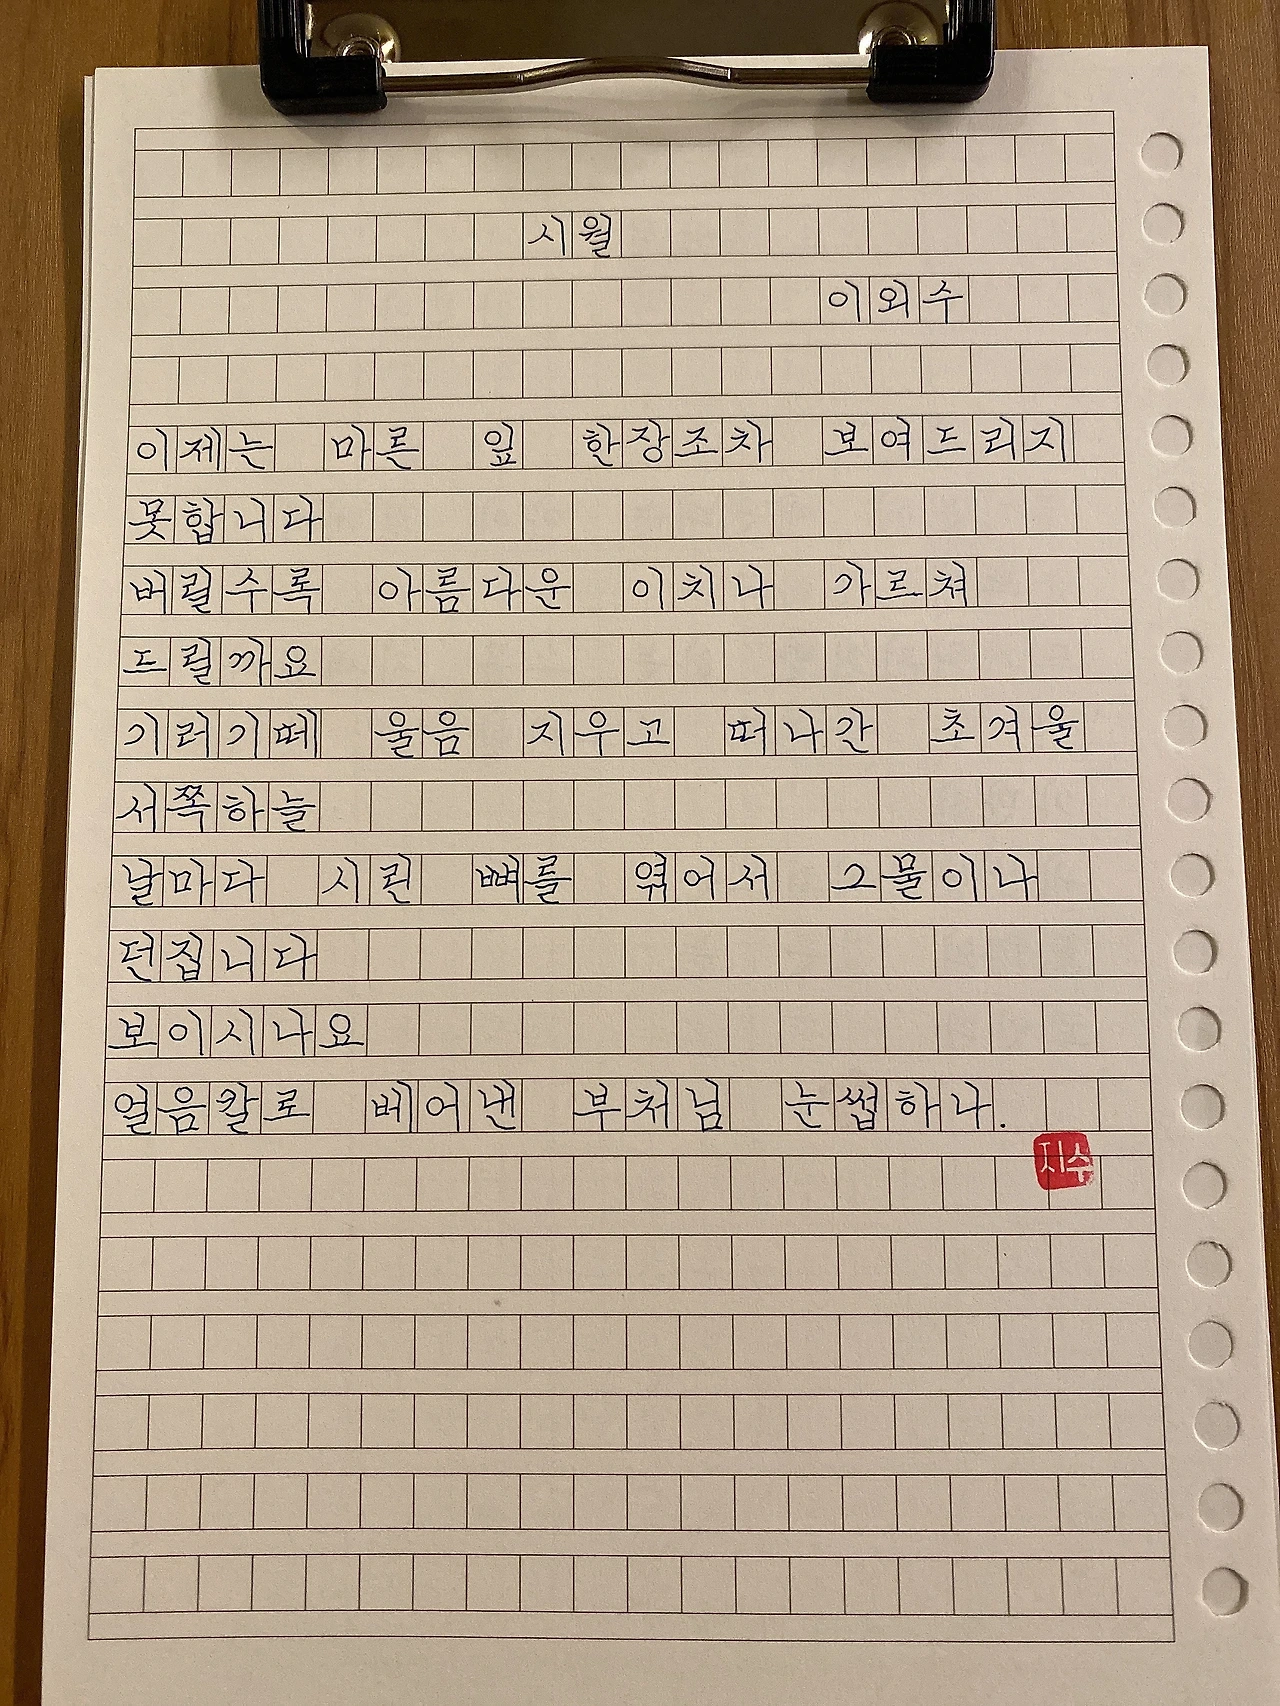 시월
이외수
이제는 마른 잎 한장조차 보여드리지
못합니다
버릴수록 아름다운 이치나 가르쳐
드릴까요
기러기떼 울음 지우고 떠나간 초겨울
서쪽하늘
날마다 시린 뼈를 엮어서 그물이나
던집니다
보이시나요
얼음칼로 베어낸 부처님 눈썹하나.
지수